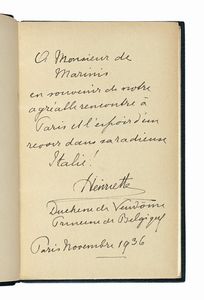 A Monsieur de
Marinis
en souvenir de notre
agréable rencontre à
Paris et l'espoir d'un
revoir dans sa radieuse
Italie!
Henriette
Duchesse de Vendôme
Princesse de Belgique
Paris Novembre 1936